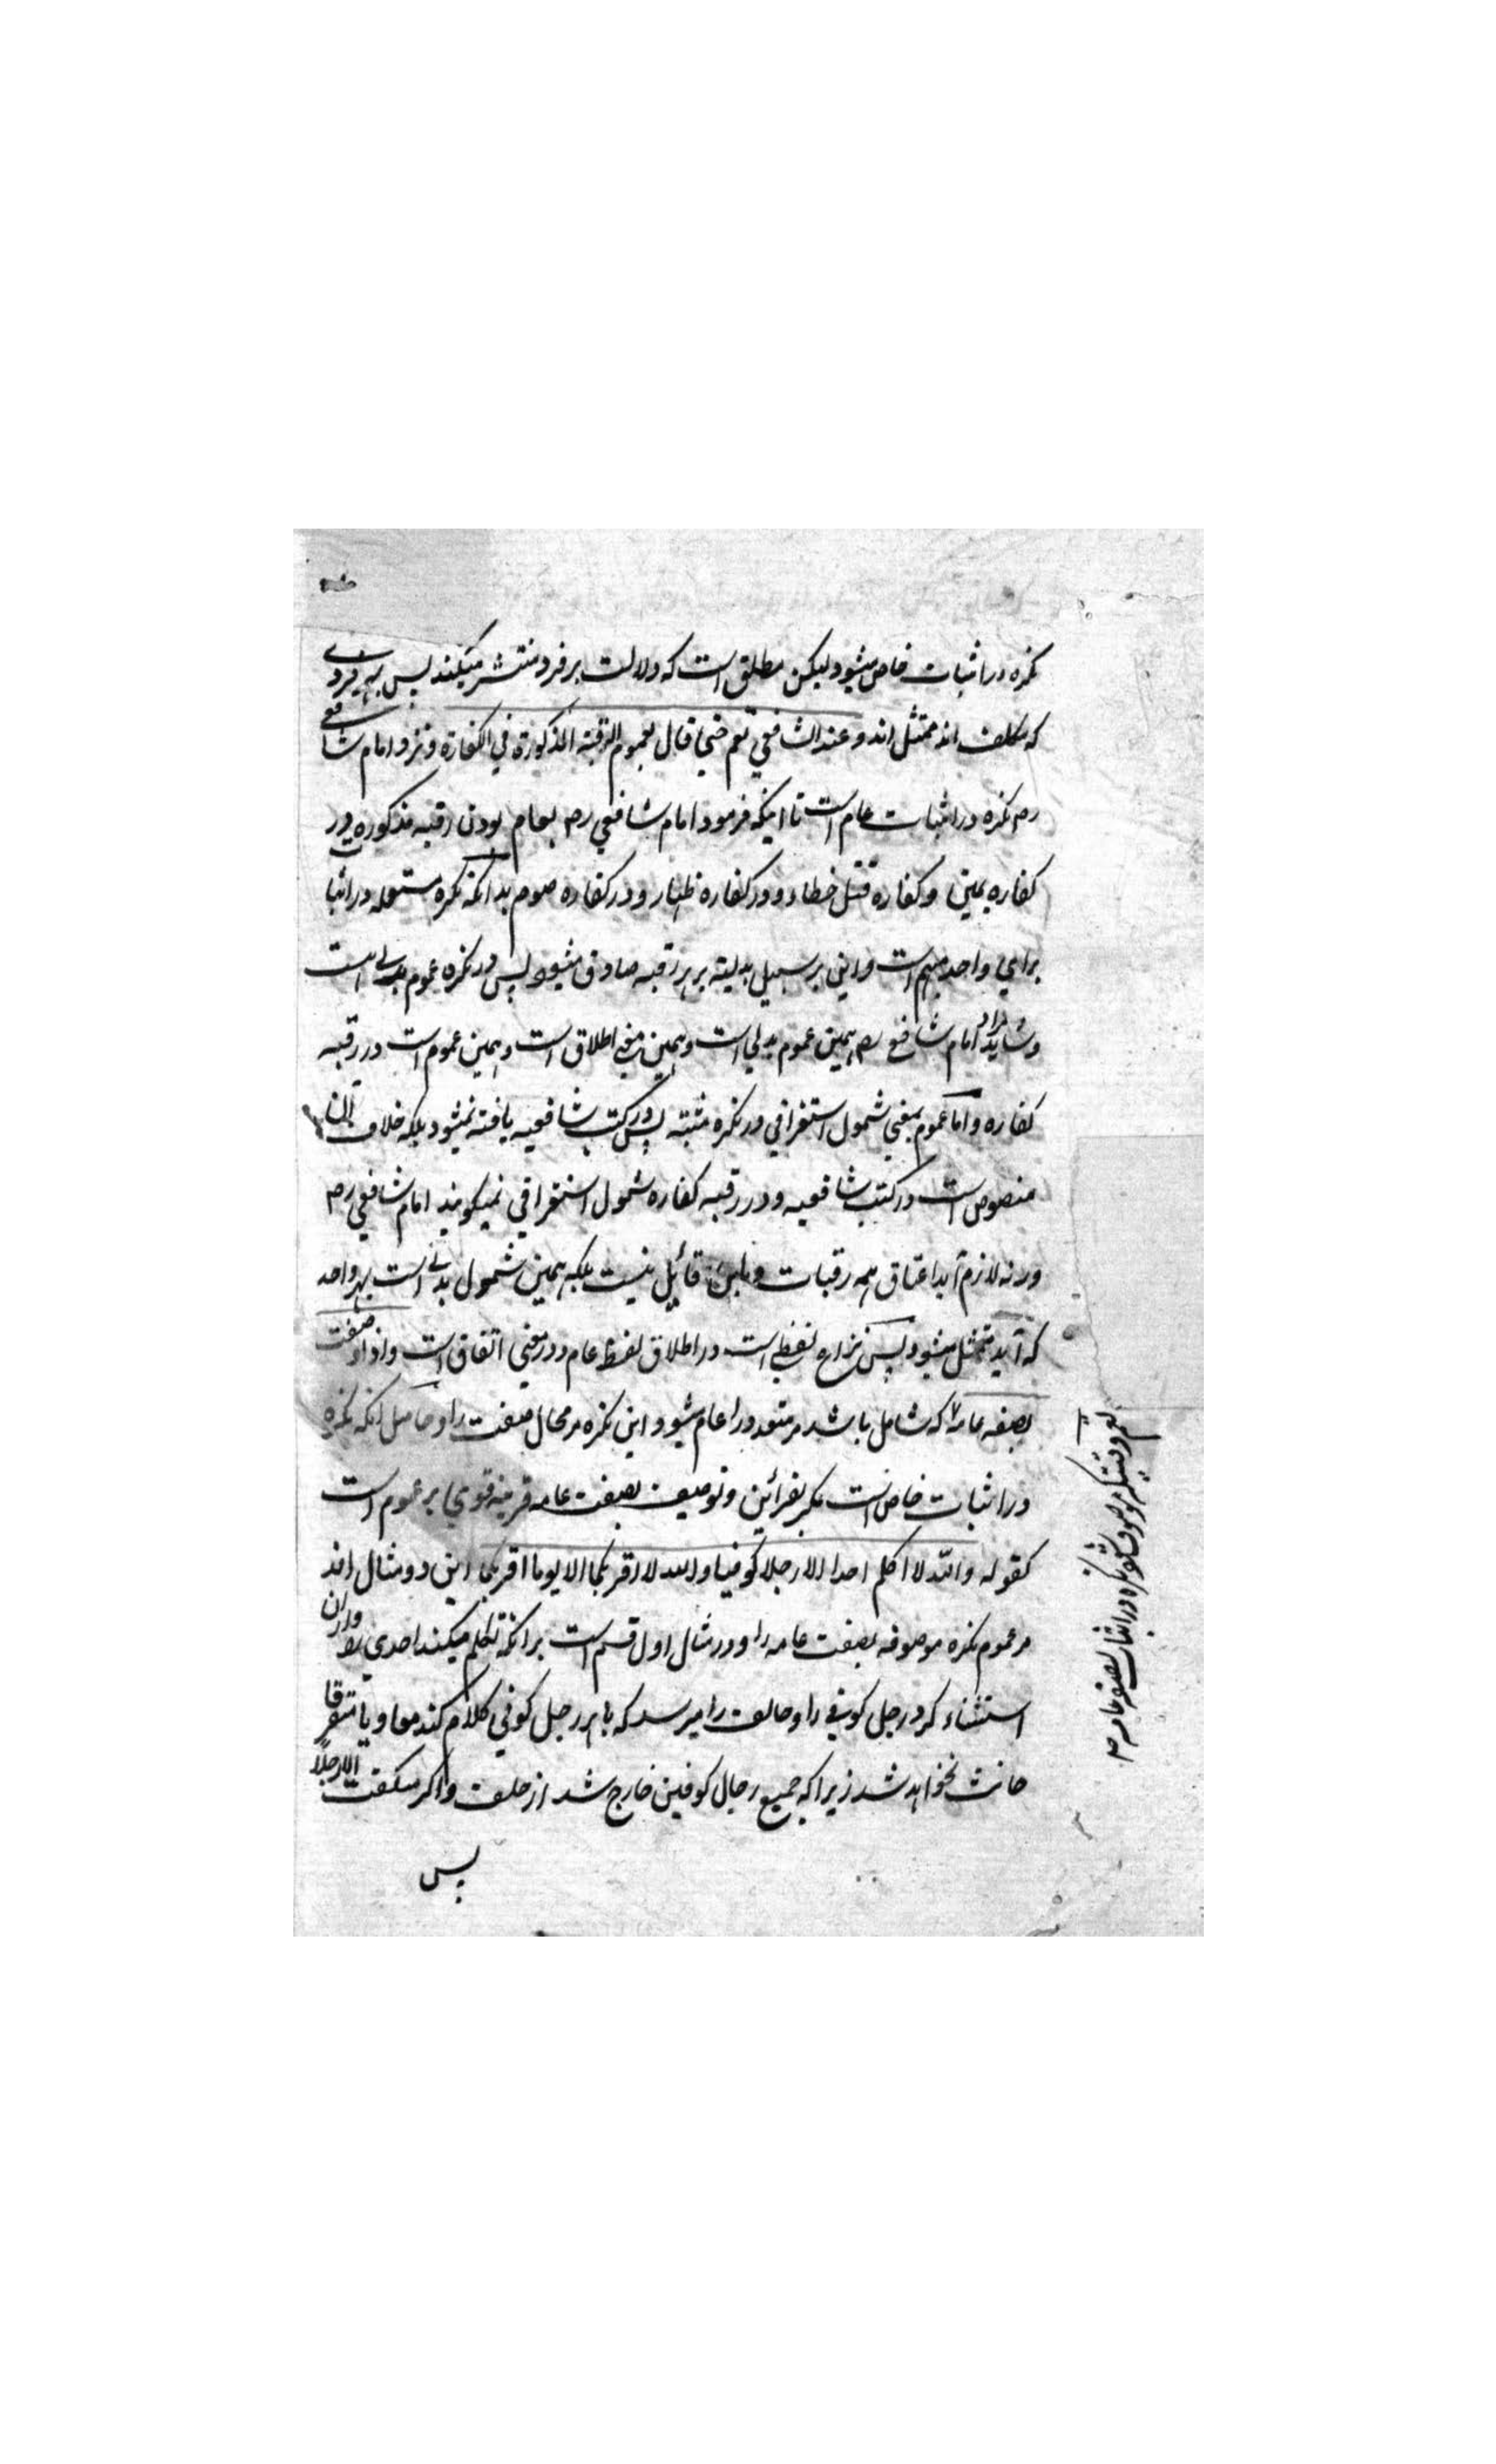 نکره در اثبات خاص میشود لیکن مطلق است که دلالت بر فرد منتشر میکند پس بهر فردی
که مکلف اند ممتثل اند و عند الشافعی تعم حتی قال بعموم الرقبة المذکورة فی الکفارة و نزد امام شافعی
رح نکره در اثبات عام است تا اینکه فرمود امام شافعی رح بعام بودن رقبه مذکوره در
کفاره یمین و کفاره قتل خطاء و در کفاره ظهار و در کفاره صوم بدانکه نکره مستعمله در اثبات
برای واحد مبهم است و این بر سبیل بدلیة بر هر رقبه صادق میشود پس در نکره عموم بدلی است
و شاید مراد امام شافعی رح همین عموم بدلی است و همین معنی اطلاق است و همین عموم است در رقبه
کفاره و اما عموم بمعنی شمول استغراقی در نکره مثبته پس در کتب شافعیه یافته نمیشود بلکه خلاف آن
منصوص است در کتب شافعیه و در رقبه کفاره شمول استغراقی نمیگویند امام شافعی رح
ورنه لازم آید اعتاق همه رقبات و باین قائل نیست بلکه همین شمول بدلی است بهر واحد
که آید ممتثل میشود پس نزاع لفظی است در اطلاق لفظ عام و در معنی اتفاق است و اذا وصفت
بصفه عامه که شامل باشد مر متعدد را عام میشود این نکره مر محال صفت را و حاصل آنکه نکره
در اثبات خاص است مگر بقرائن و توصیف بصفت عامه قرینه قوی بر عموم است
کقوله والله لا اکلم احدا الا رجلا کوفیا و الله لا اقربکما الا یوما اقربکما این دو مثال اند
مر عموم نکره موصوفه بصفت عامه را و در مثال اول قسم است برانکه تکلم میکند احدی را و ازان
استثناء کرد رجل کوفی را و حالف را میرسد که با هر رجل کوفی کلام کند معا و یا متفرقا
حانث نخواهد شد زیرا که جمیع رجال کوفین خارج شد از حلف و اگر میگفت الا رجلا
پس
نکره در اثبات بصفه عامه